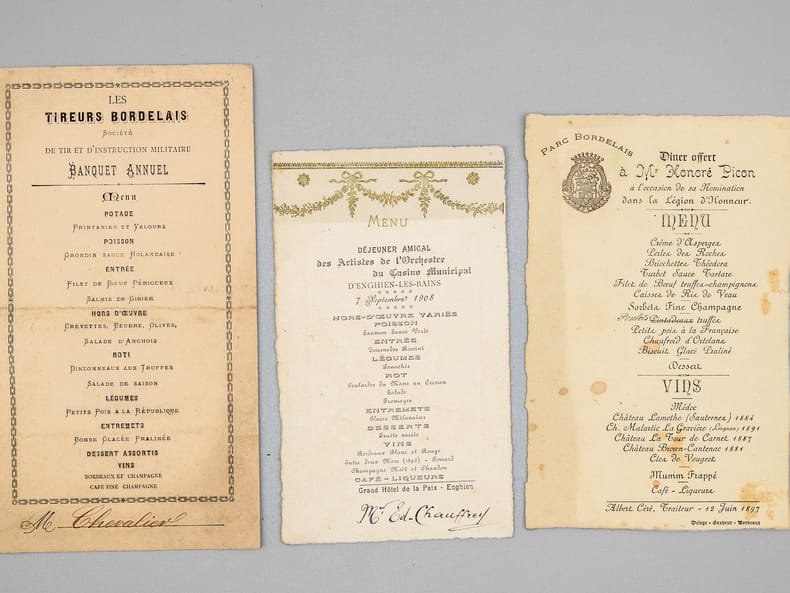 LES
TIREURS BORDELAIS
SOCIÉTÉ
DE TIR ET D'INSTRUCTION MILITAIRE
BANQUET ANNUEL
Menu
POTAGE
PRINTANIER ET VELOURS
POISSON
GRONDIN SAUCE HOLANDAISE
ENTRÉE
FILET DE BŒUF PÉRIGUEUX
SALMIS DE GIBIER
HORS D'ŒUVRE
CREVETTES, BEURRE, OLIVES,
SALADE D'ANCHOIS
ROTI
DINDONNEAUX AUX TRUFFES
SALADE DE SAISON
LÉGUMES
PETITS POIS A LA RÉPUBLIQUE
ENTREMETS
BOMBE GLACÉE PRALINÉE
DESSERT ASSORTIS
VINS
BORDEAUX ET CHAMPAGNE
CAFÉ FINE CHAMPAGNE
M Chevalier
MENU
DÉJEUNER AMICAL
des Artistes de l'Orchestre
du Casino Municipal
D'ENGHIEN-LES-BAINS
7 Septembre 1908
HORS-D'ŒUVRE VARIÉS
POISSON
Saumon Sauce Verte
ENTRÉE
Tournedos Rossini
LÉGUMES
Panachés
ROT
Poulardes du Mans au Cresson
Salade
Fromages
ENTREMETS
Glace Milanaises
DESSERTS
Fruits variés
VINS
Bordeaux Blanc et Rouge
Entre deux Mers (1890) - Pomard
Champagne Moët et Chandon
CAFÉ - LIQUEURS
Grand Hôtel de la Paix - Enghien
Mr Ed. Chauffrey
PARC BORDELAIS
Dîner offert
à Mr Honoré Picon
à l'occasion de sa Nomination
dans la Légion d'Honneur.
MENU
Crème d'Asperges
Perles des Roches
Briochettes Théodora
Turbot Sauce Tartare
Filet de Bœuf truffes-champignons
Caisses de Ris de Veau
Sorbets Fine Champagne
Pintadeaux truffés
Petits pois à la Française
Chaufroid d'Ortolans
Biscuit Glacé Praliné
Dessert
VINS
Médoc
Château Lamothe (Sauternes) 1884
Ch. Malartic La Gravière (Léognan) 1891
Château La Tour de Carnet 1887
Château Brown-Cantenac 1881
Clos de Vougeot
Mumm Frappé
Café - Liqueurs
Albert Cété, Traiteur - 12 Juin 1897
Deloge - Graveur - Bordeaux